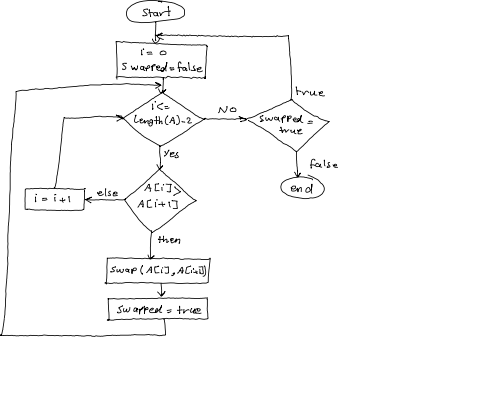 Start
i = 0
swapped=false
i<=
length(A)-2
NO
swapped =
true
true
false
end
yes
A[i]>
A[i+1]
else
i = i+1
then
swap(A[i],A[i+1])
swapped = true